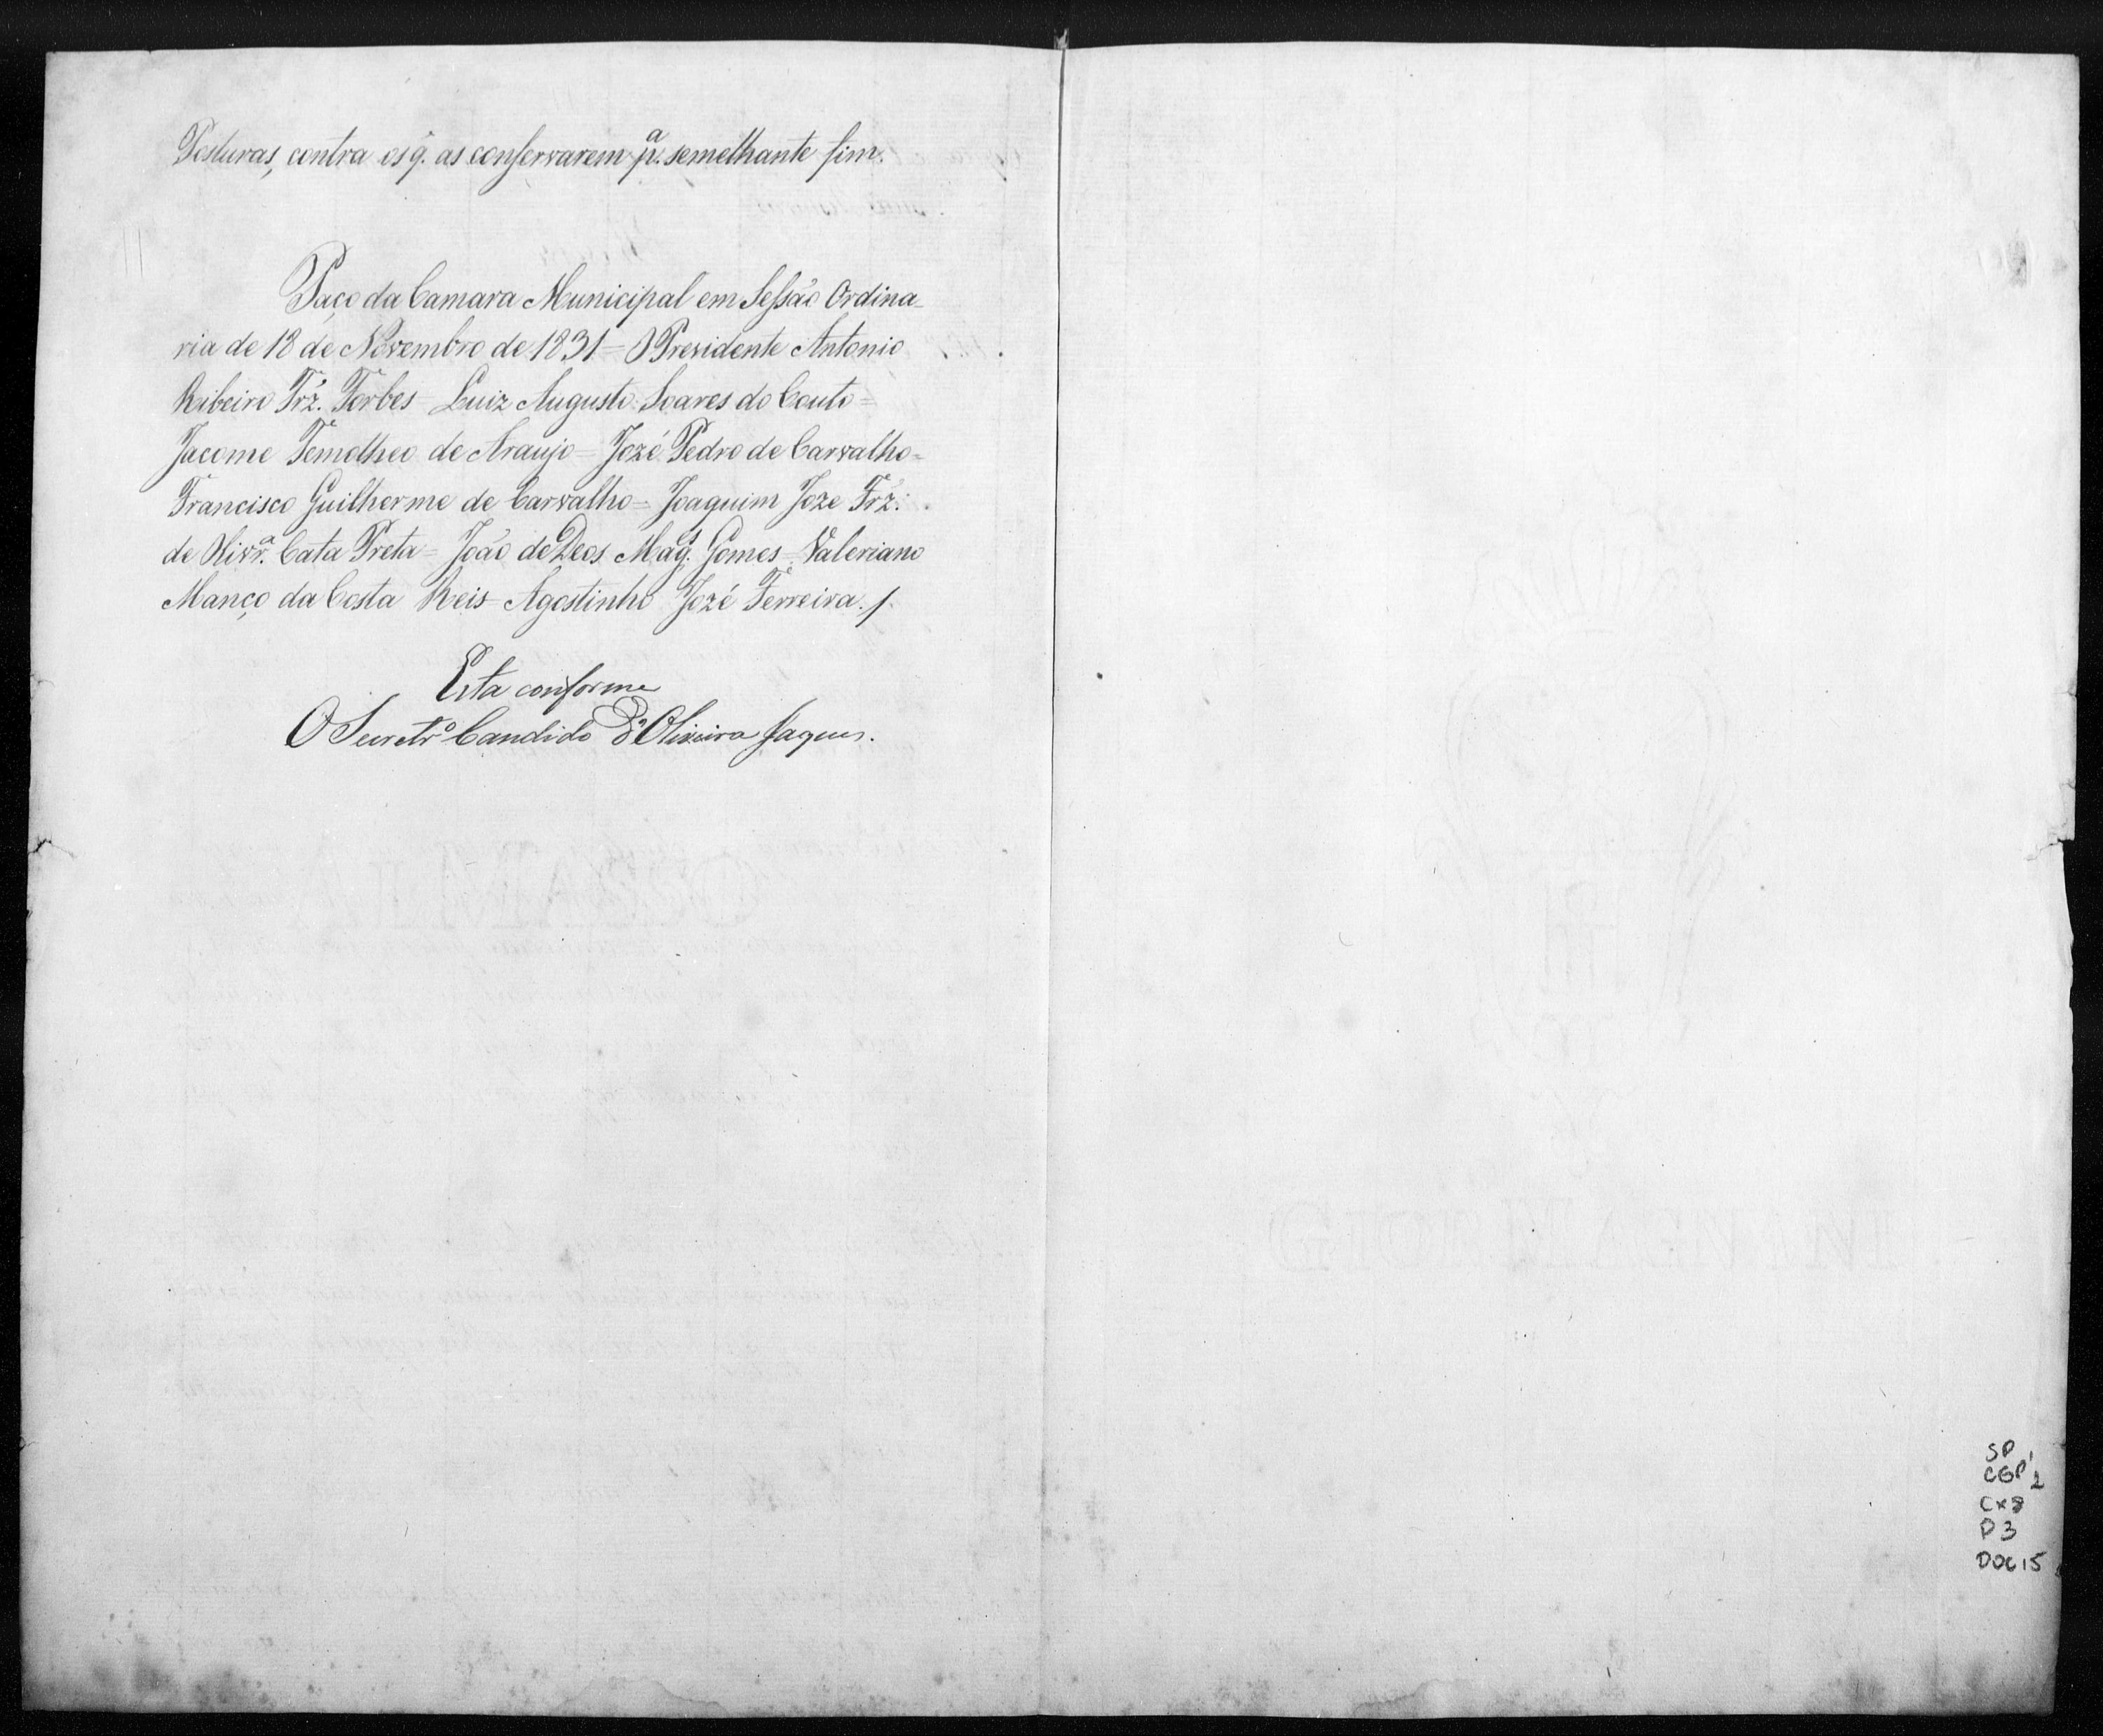 Posturas, contra os q. as conservarem p.a semelhante fim.
Paço da Camara Municipal em Sessão Ordina-
ria de 18 de Novembro de 1831 = O Presidente Antonio
Ribeiro Frz. Forbes = Luiz Augusto Soares do Couto =
Jacome Temotheo de Araujo = Jozé Pedro de Carvalho =
Francisco Guilherme de Carvalho = Joaquim Joze Frz.
de Olivr.a Cata Preta = João de Deos Mag.s Gomes = Valeriano
Manço da Costa Reis = Agostinho Jozé Ferreira./.
Esta conforme
O Secretr.o Candido d'Oliveira Jaques.
SP
CGP 1
2
Cx 8
P 3
DOC 15